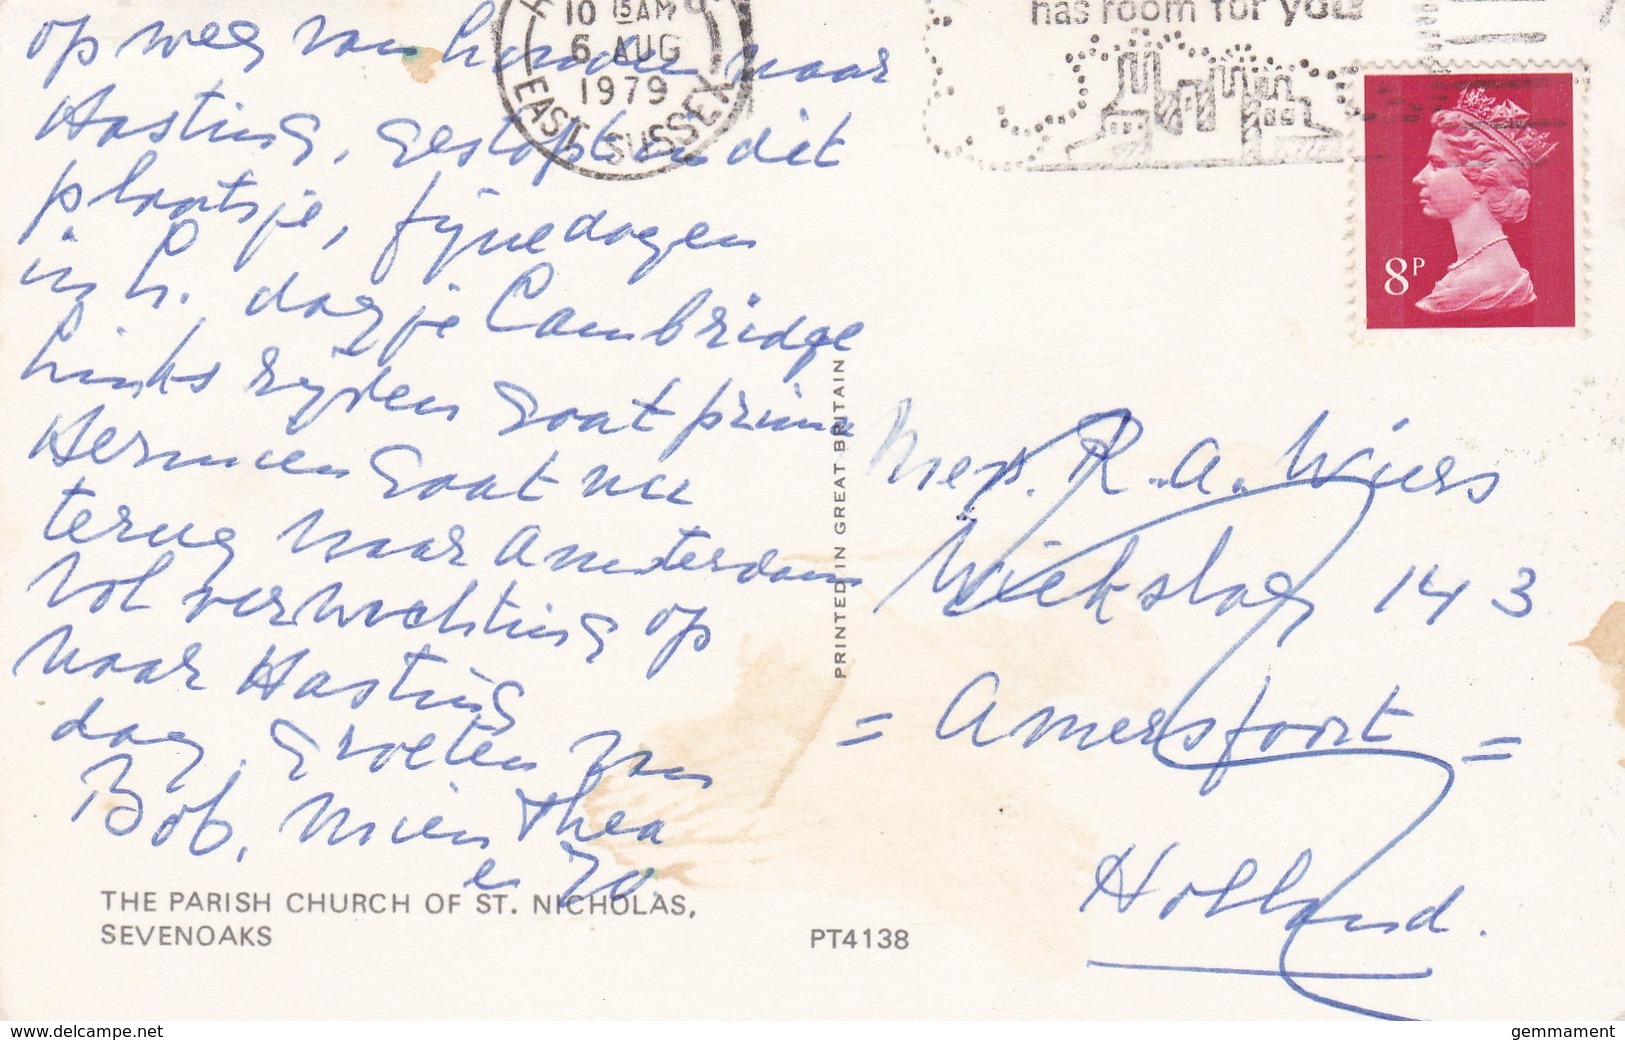 10 15 AM
6 AUG
1979
EAST SUSSEX
has room for you
op weg van Londen naar
Hasting, gestopt in dit
plaatsje, fijne dagen
in L. dagje Cambridge
Links rijden gaat prima
Hermien gaat nu
terug naar Amsterdam
Vol verwachting op
naar Hasting
dag. Groeten van
Bob, Mien Thea
e
THE PARISH CHURCH OF ST. NICHOLAS,
SEVENOAKS
PT4138
PRINTED IN GREAT BRITAIN
8P
Mej. R. A. Wiers
Wiekslag 143
= Amersfoort =
Holland.
www.delcampe.net
gemmament